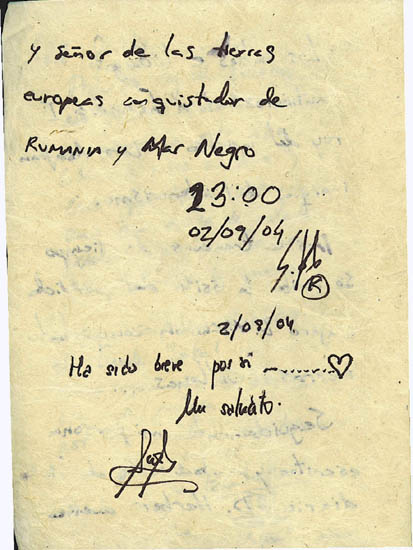 y señor de las tierras
europeas conquistador de
RUMANIA y Mar Negro
13:00
02/09/04
R
2/09/04
Ha sido breve por si ..........♡
Un saludito.